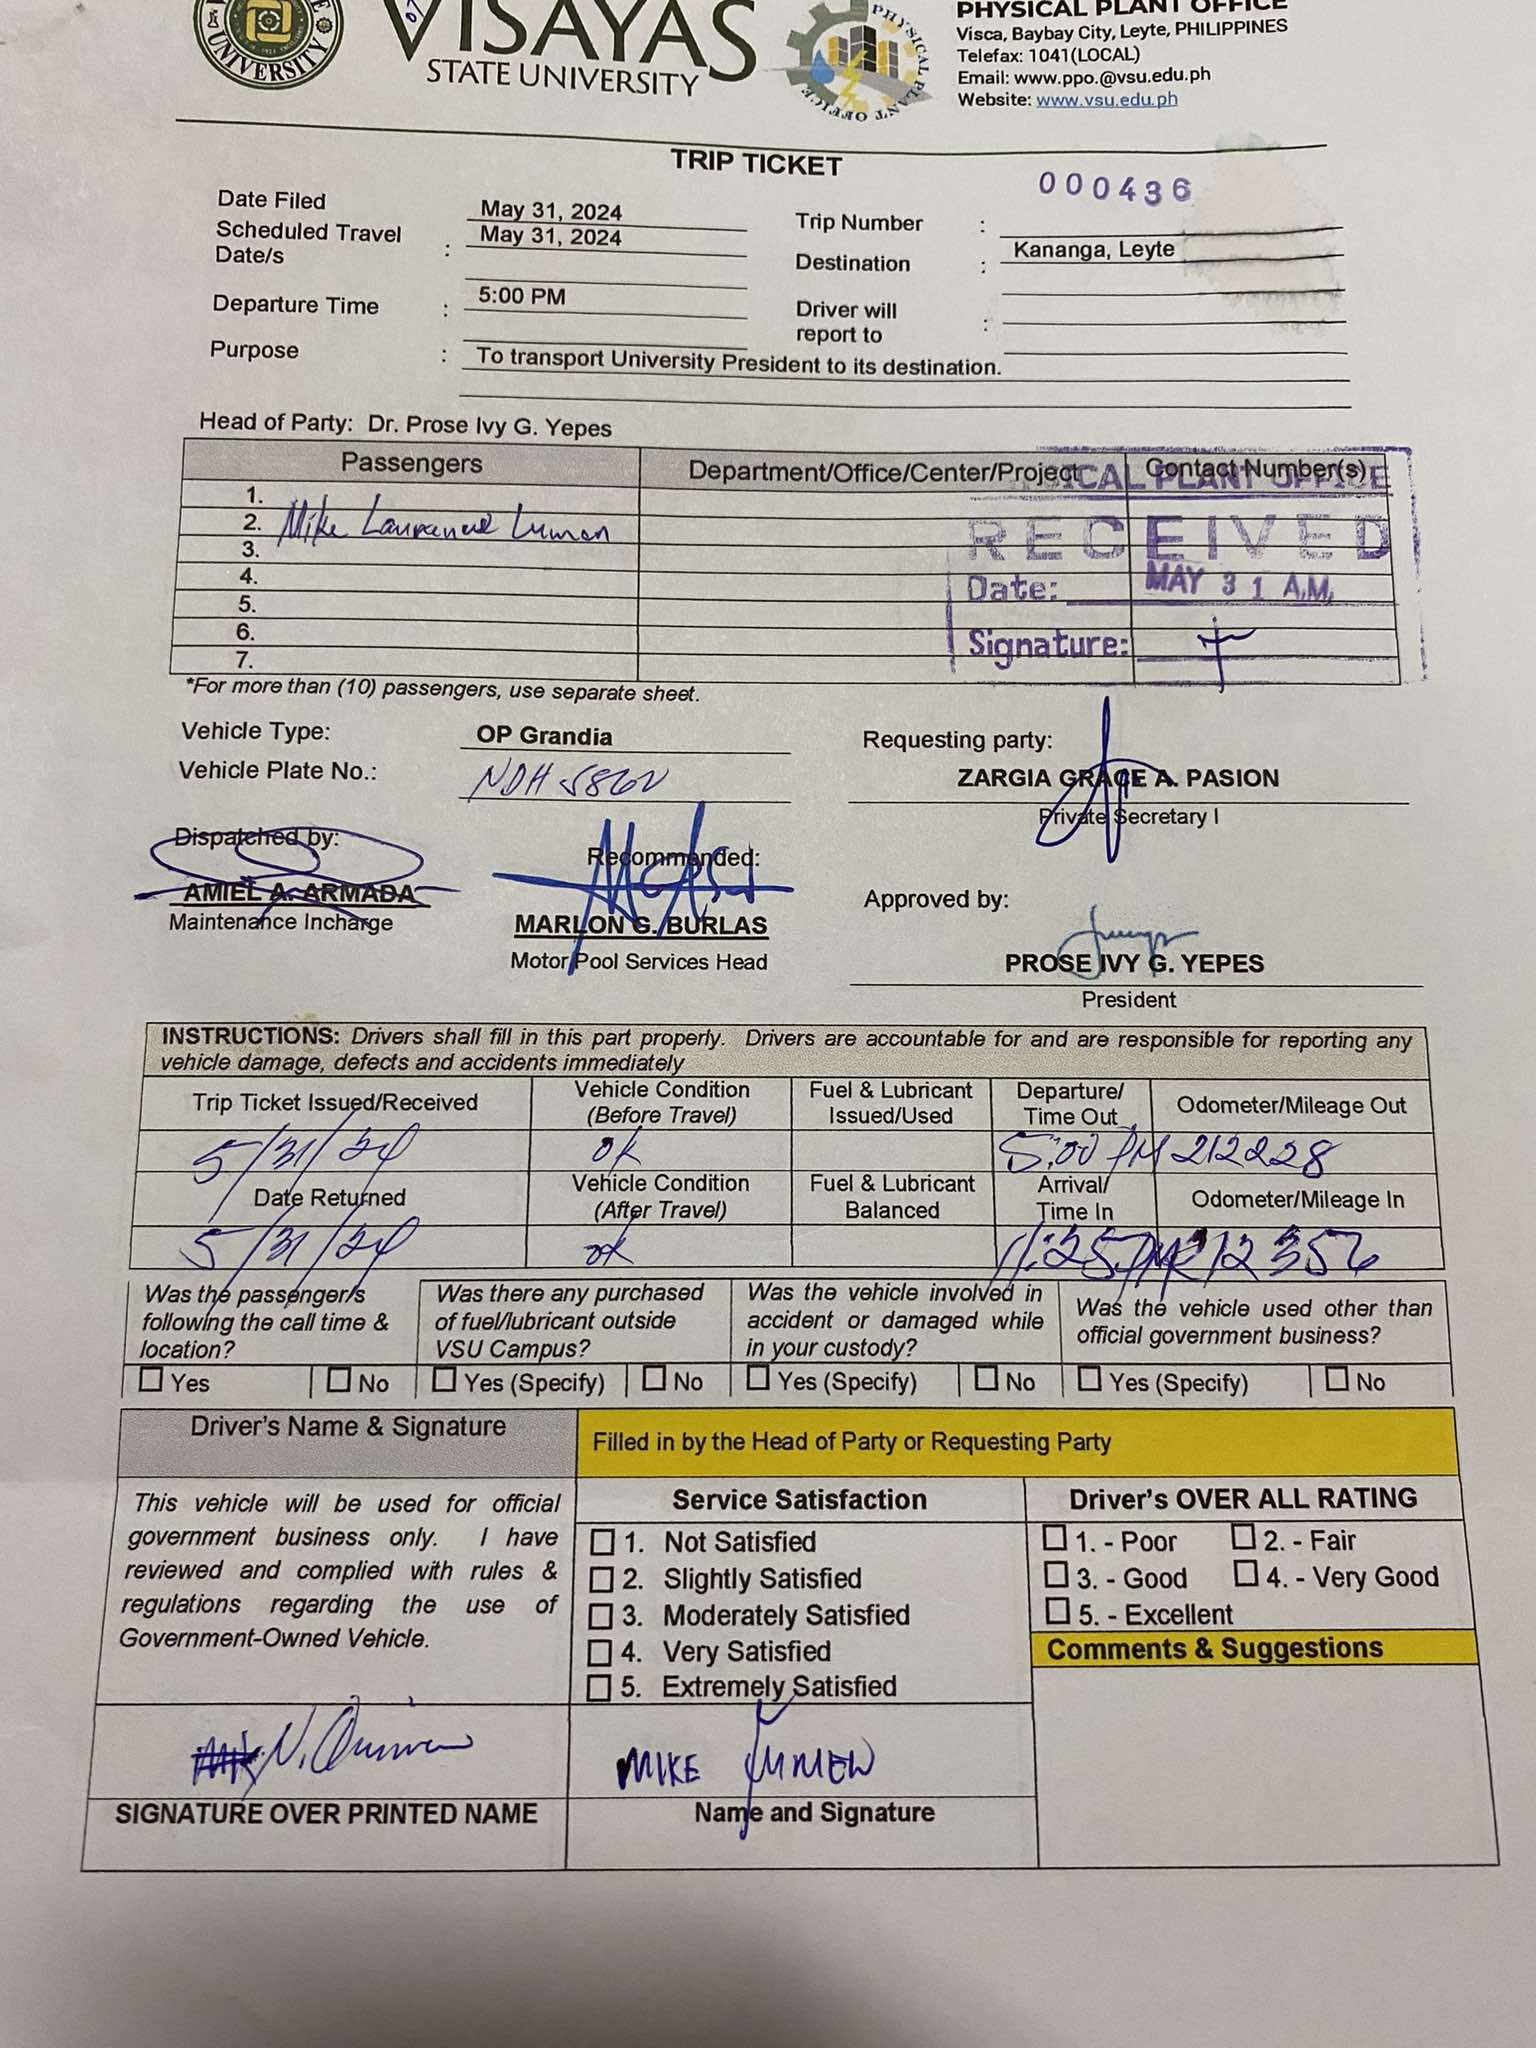 VISAYAS
STATE UNIVERSITY
UNIVERSITY
PHYSICAL PLANT OFFICE
PHYSICAL PLANT OFFICE
Visca, Baybay City, Leyte, PHILIPPINES
Telefax: 1041(LOCAL)
Email: www.ppo.@vsu.edu.ph
Website: www.vsu.edu.ph
TRIP TICKET
000436
Date Filed May 31, 2024 Trip Number :
Scheduled Travel Date/s : May 31, 2024 Destination : Kananga, Leyte
Departure Time : 5:00 PM Driver will report to :
Purpose : To transport University President to its destination.
Head of Party: Dr. Prose Ivy G. Yepes
Passengers Department/Office/Center/Project Contact Number(s)
1.
2. Mike
3.
4.
5.
6.
7.
PLANT OFFICE
RECEIVED
Date: MAY 31 A.M.
Signature:
*For more than (10) passengers, use separate sheet.
Vehicle Type: OP Grandia Requesting party:
Vehicle Plate No.: NDH ZARGIA GRACE A. PASION
Private Secretary I
Dispatched by: Recommended:
AMIEL A. ARMADA Approved by:
Maintenance Incharge MARLON G. BURLAS
Motor Pool Services Head PROSE IVY G. YEPES
President
INSTRUCTIONS: Drivers shall fill in this part properly. Drivers are accountable for and are responsible for reporting any
vehicle damage, defects and accidents immediately
Trip Ticket Issued/Received Vehicle Condition (Before Travel) Fuel & Lubricant Issued/Used Departure/ Time Out Odometer/Mileage Out
5/31/24 ok 5:00 PM 212228
Date Returned Vehicle Condition (After Travel) Fuel & Lubricant Balanced Arrival/ Time In Odometer/Mileage In
5/31/24 ok 11:25 PM 212356
Was the passenger/s following the call time & location? Was there any purchased of fuel/lubricant outside VSU Campus? Was the vehicle involved in accident or damaged while in your custody? Was the vehicle used other than official government business?
Yes No Yes (Specify) No Yes (Specify) No Yes (Specify) No
Driver's Name & Signature Filled in by the Head of Party or Requesting Party
This vehicle will be used for official
government business only. I have
reviewed and complied with rules &
regulations regarding the use of
Government-Owned Vehicle.
Service Satisfaction
1. Not Satisfied
2. Slightly Satisfied
3. Moderately Satisfied
4. Very Satisfied
5. Extremely Satisfied
Driver's OVER ALL RATING
1. - Poor 2. - Fair
3. - Good 4. - Very Good
5. - Excellent
Comments & Suggestions
MIKE
SIGNATURE OVER PRINTED NAME Name and Signature